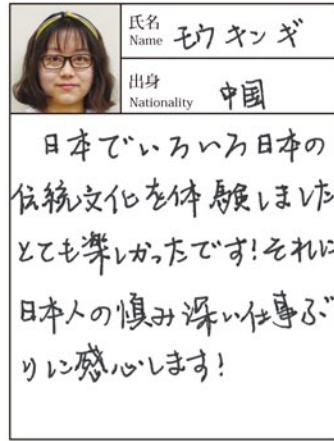 氏名
Name モウ キン ギ
出身
Nationality 中国
日本でいろいろ日本の
伝統文化を体験しました
とても楽しかったです!それに
日本人の慎み深い仕事ぶ
りに感心します!